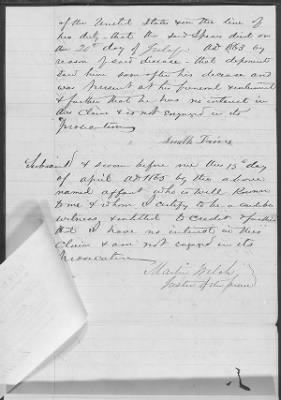 of the United States & in the line of
his duty - that the said Spears died on
the 20th day of July AD 1863 by
reason of said disease - that deponent
saw him soon after his decease and
was present at his funeral & interment
& further that he has no interest in
this Claim & is not engaged in its
Prosecution
Subscribed & sworn before me this 15th day
of April AD 1865 by the above
named affiant who is well Known
to me & whom I certify to be a credible
witness & entitled to credit & further
that I have no interest in this
Claim & am not engaged in its
Prosecution
Martin Welch
Justice of the peace